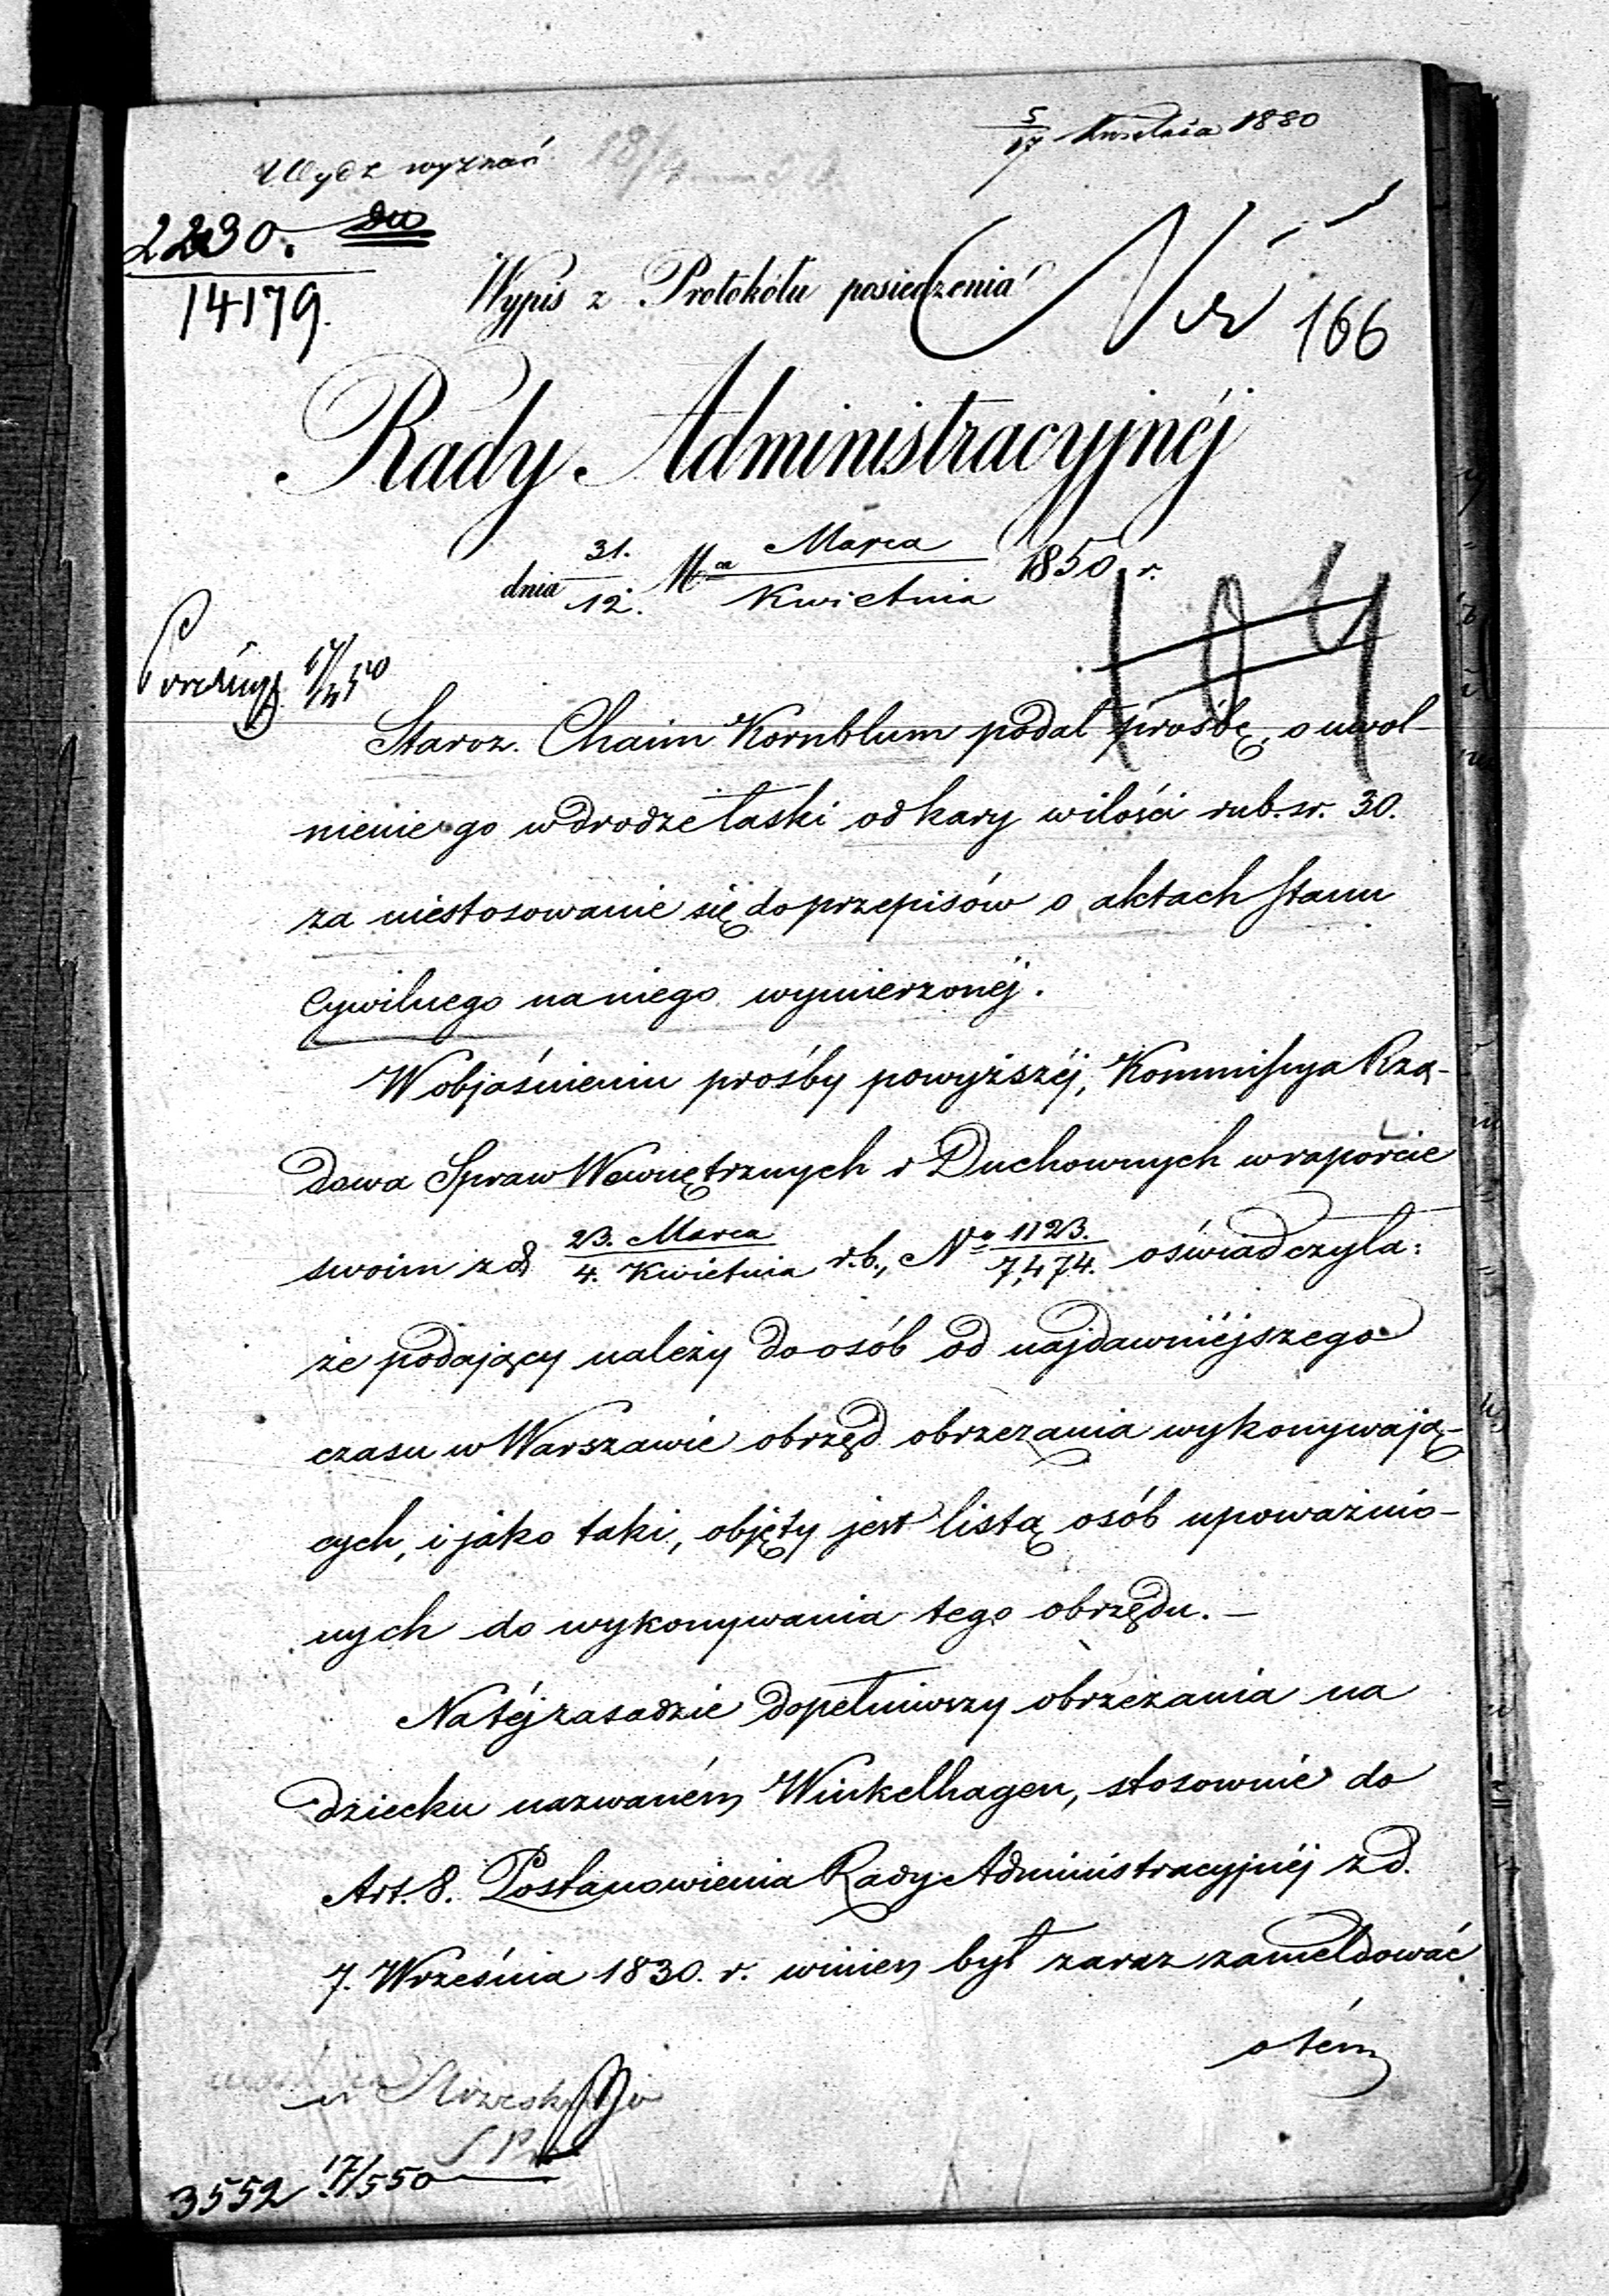 5/17 Kwietnia 1850
Wydz wyznań
2230.
14179.
Wypis z Protokółu posiedzenia
166
Rady Administracyjnéj
dnia 31./12. Mca Marca/Kwietnia 1850 r.
104
17/4 50
Staroz. Chaim Kornblum podał prośbę, o uwol-
nienie go w drodze łaski od kary w ilości rub. sr. 30.
za niestosowanie się do przepisów o aktach Stanu
Cywilnego na niego wymierzonéj.
W objaśnieniu prośby powyższéj, Kommissya Rzą-
dowa Spraw Wewnętrznych i Duchownych w raporcie
swoim z d. 23. Marca/4. Kwietnia r.b., No 1123./7,474. oświadczyła:
że podający należy do osób od najdawniéjszego
czasu w Warszawie obrzęd obrzezania wykonywają-
cych, i jako taki, objęty jest listą osób upoważnio-
nych do wykonywania tego obrzędu. —
Na téj zasadzie dopełniwszy obrzezania na
dziecku nazwaném Winkelhagen, stosownie do
Art. 8. Postanowienia Rady Administracyjnéj z d.
7. Września 1830. r. winien był zaraz zameldować
o tém
3552 17/5 50